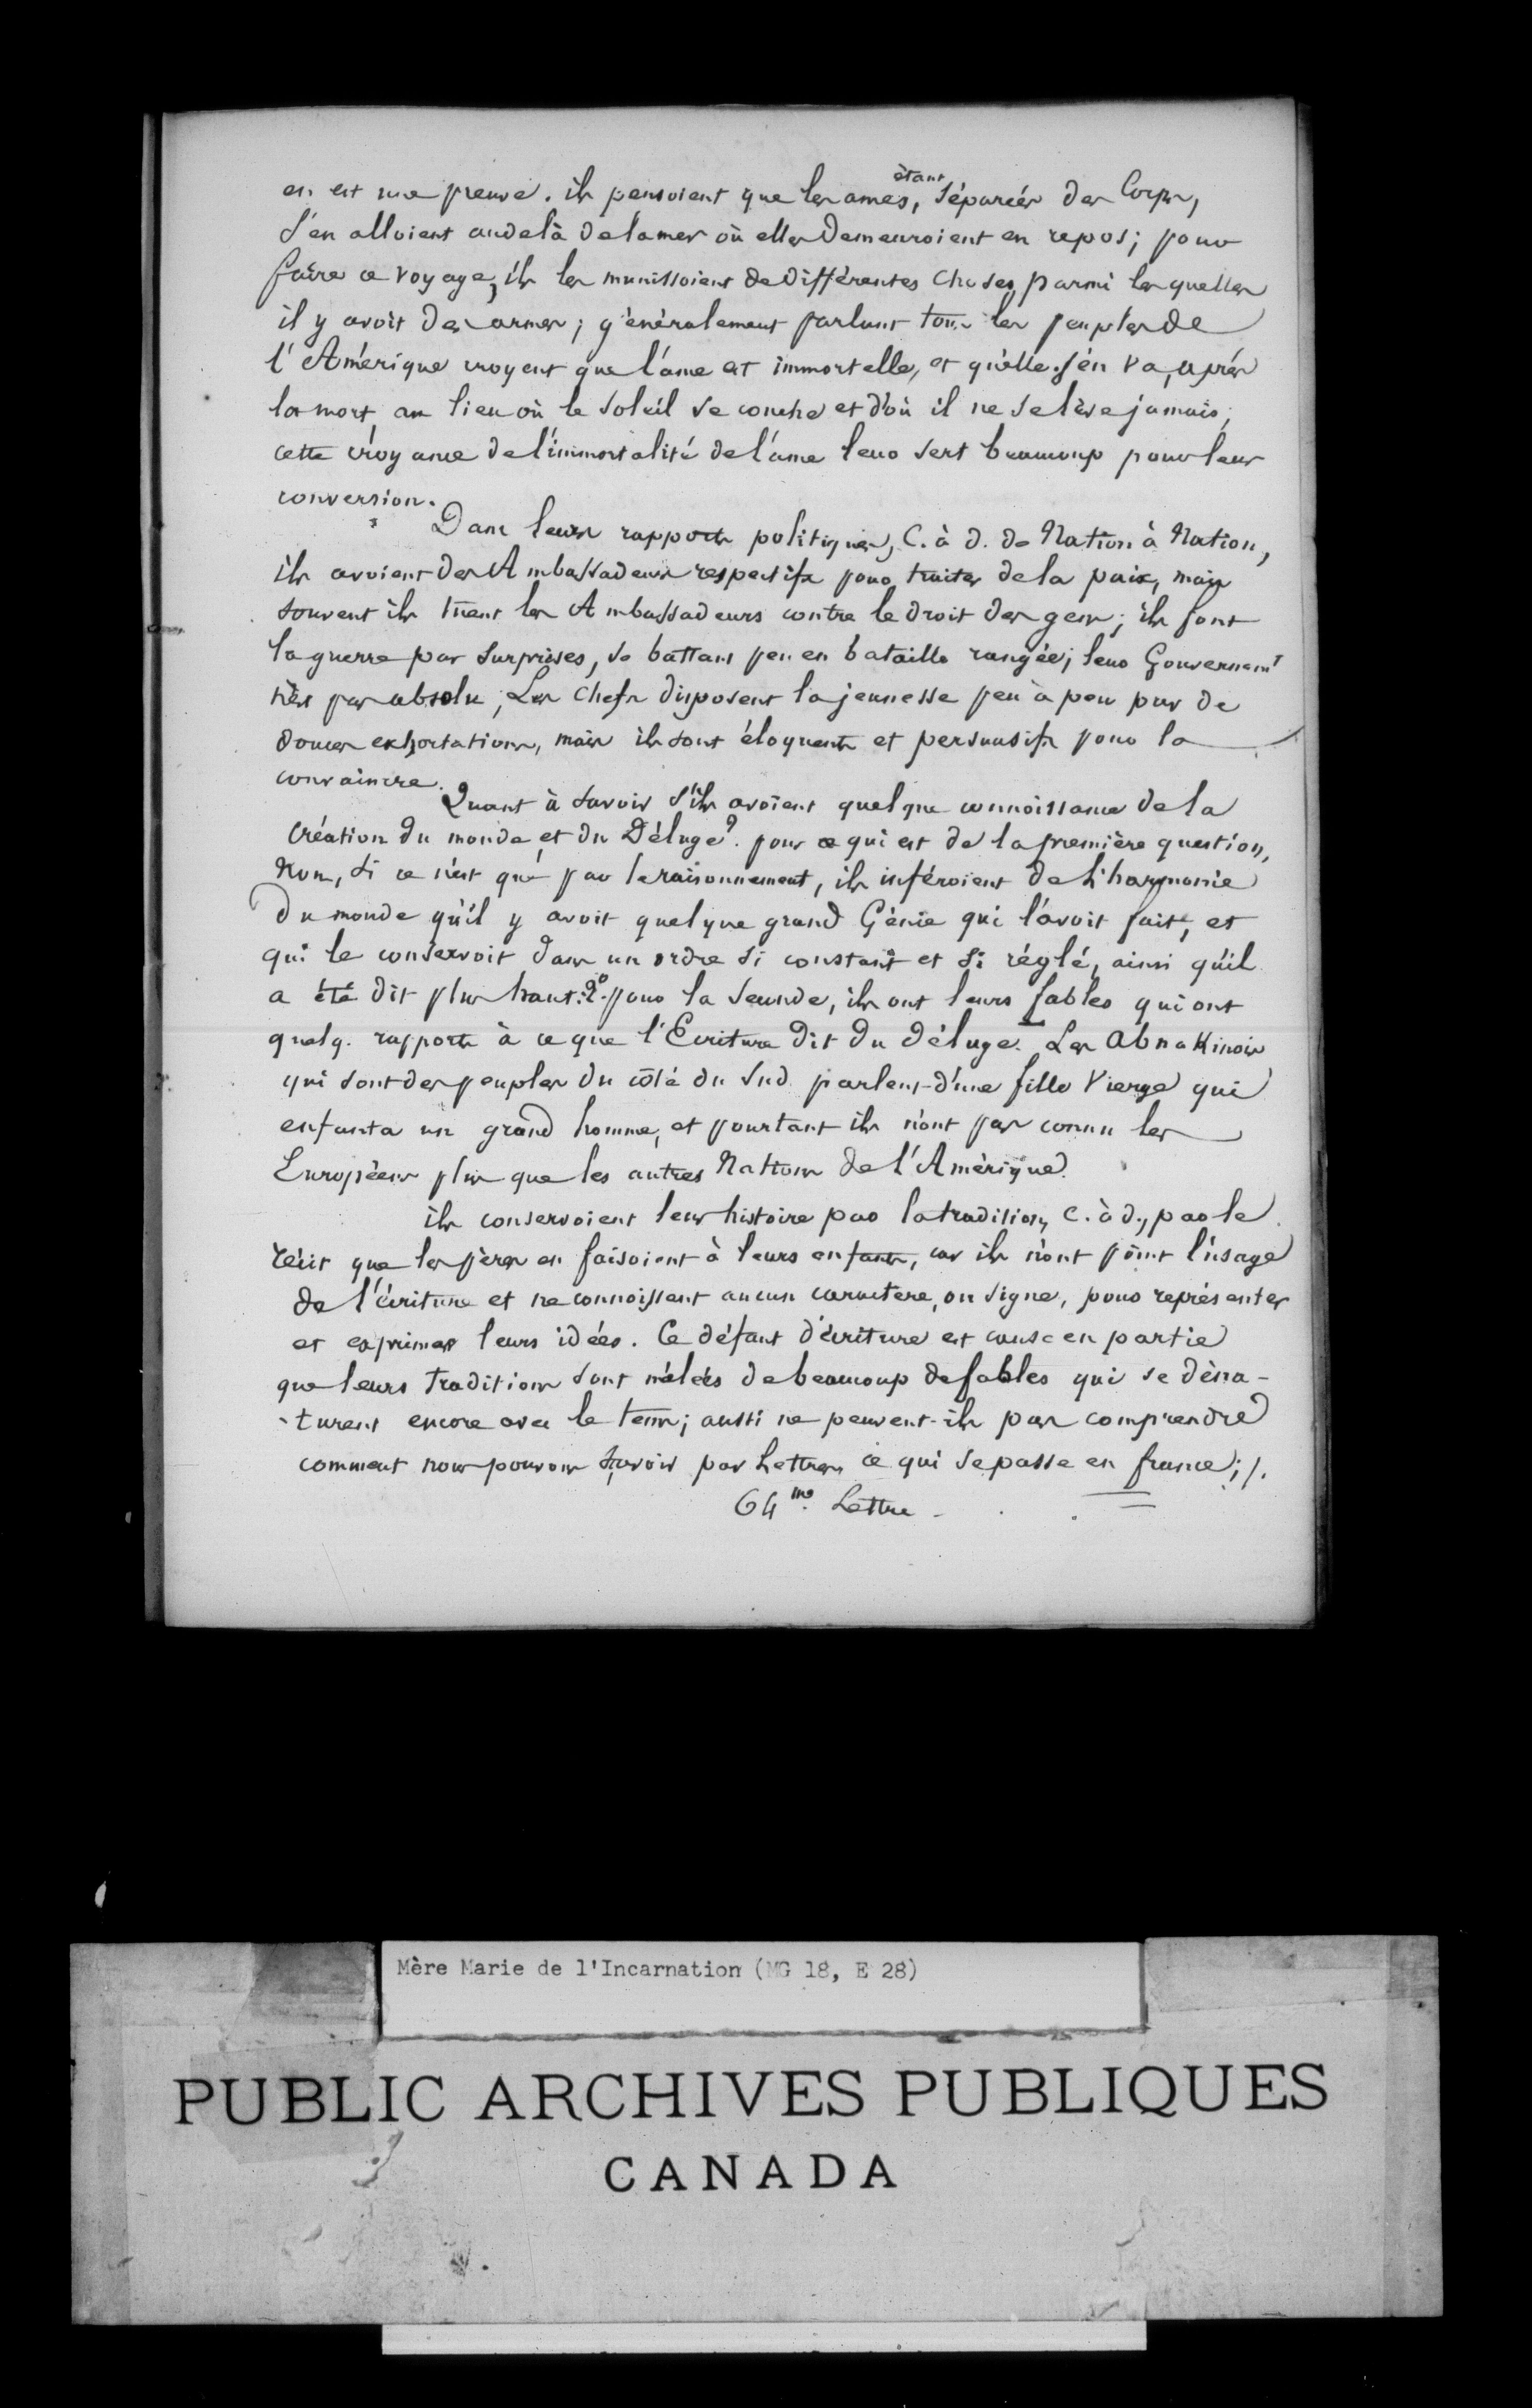 en est une preuve. ils pensoient que les ames, étant séparées des Corps,
s'en alloient audelà de la mer où elles demeuroient en repos; pour
faire ce voyage, ils les munissoient de différentes choses, parmi lesquelles
il y avoit des armes; généralement parlant tous les peuples de
l'Amérique croyent que l'ame est immortelle, et qu'elle s'en va, après
la mort, au lieu où le soleil se couche et d'où il ne se lève jamais;
cette croyance de l'immortalité de l'ame leur sert beaucoup pour leur
conversion.
Dans leurs rapports politiques, C. à d. de Nation à Nation,
ils avoient des Ambassadeurs respectifs pour traiter de la paix, mais
souvent ils tuent les Ambassadeurs contre le droit des gens; ils font
la guerre par surprises, se battans peu en bataille rangée; leur Gouvernemt
n'est pas absolu; Les Chefs disposent la jeunesse peu à peu par de
douces exhortations, mais ils sont éloquents et persuasifs pour la
convaincre.
Quant à savoir s'ils avoient quelque connoissance de la
Création du monde et du Déluge? pour ce qui est de la première question,
Non, si ce n'est que par le raisonnement, ils inféroient de l'harmonie
du monde qu'il y avoit quelque grand Génie qui l'avoit fait, et
qui le conservoit dans un ordre si constant et si réglé, ainsi qu'il
a été dit plus haut. 2o. pour la seconde, ils ont leurs fables qui ont
quelq. rapports à ce que l'Ecriture dit du déluge. Les Abnakinois
qui sont des peuples du côté du Sud parlent d'une fille Vierge qui
enfanta un grand homme, et pourtant ils n'ont pas connu les
Européens plus que les autres Nations de l'Amérique.
ils conservoient leur histoire par la tradition, C. à d., par le
récit que les pères en faisoient à leurs enfants, car ils n'ont point l'usage
de l'écriture et ne connoissent aucun caractere, ou signe, pour représenter
et exprimer leurs idées. Ce défaut d'écriture est cause en partie
que leurs traditions sont mêlées de beaucoup de fables qui se déna-
-turent encore avec le tems; aussi ne peuvent-ils pas comprendre
comment nous pouvons sçavoir par Lettres ce qui se passe en france;/.
64me. Lettre -
Mère Marie de l'Incarnation (MG 18, E 28)
PUBLIC ARCHIVES PUBLIQUES
CANADA